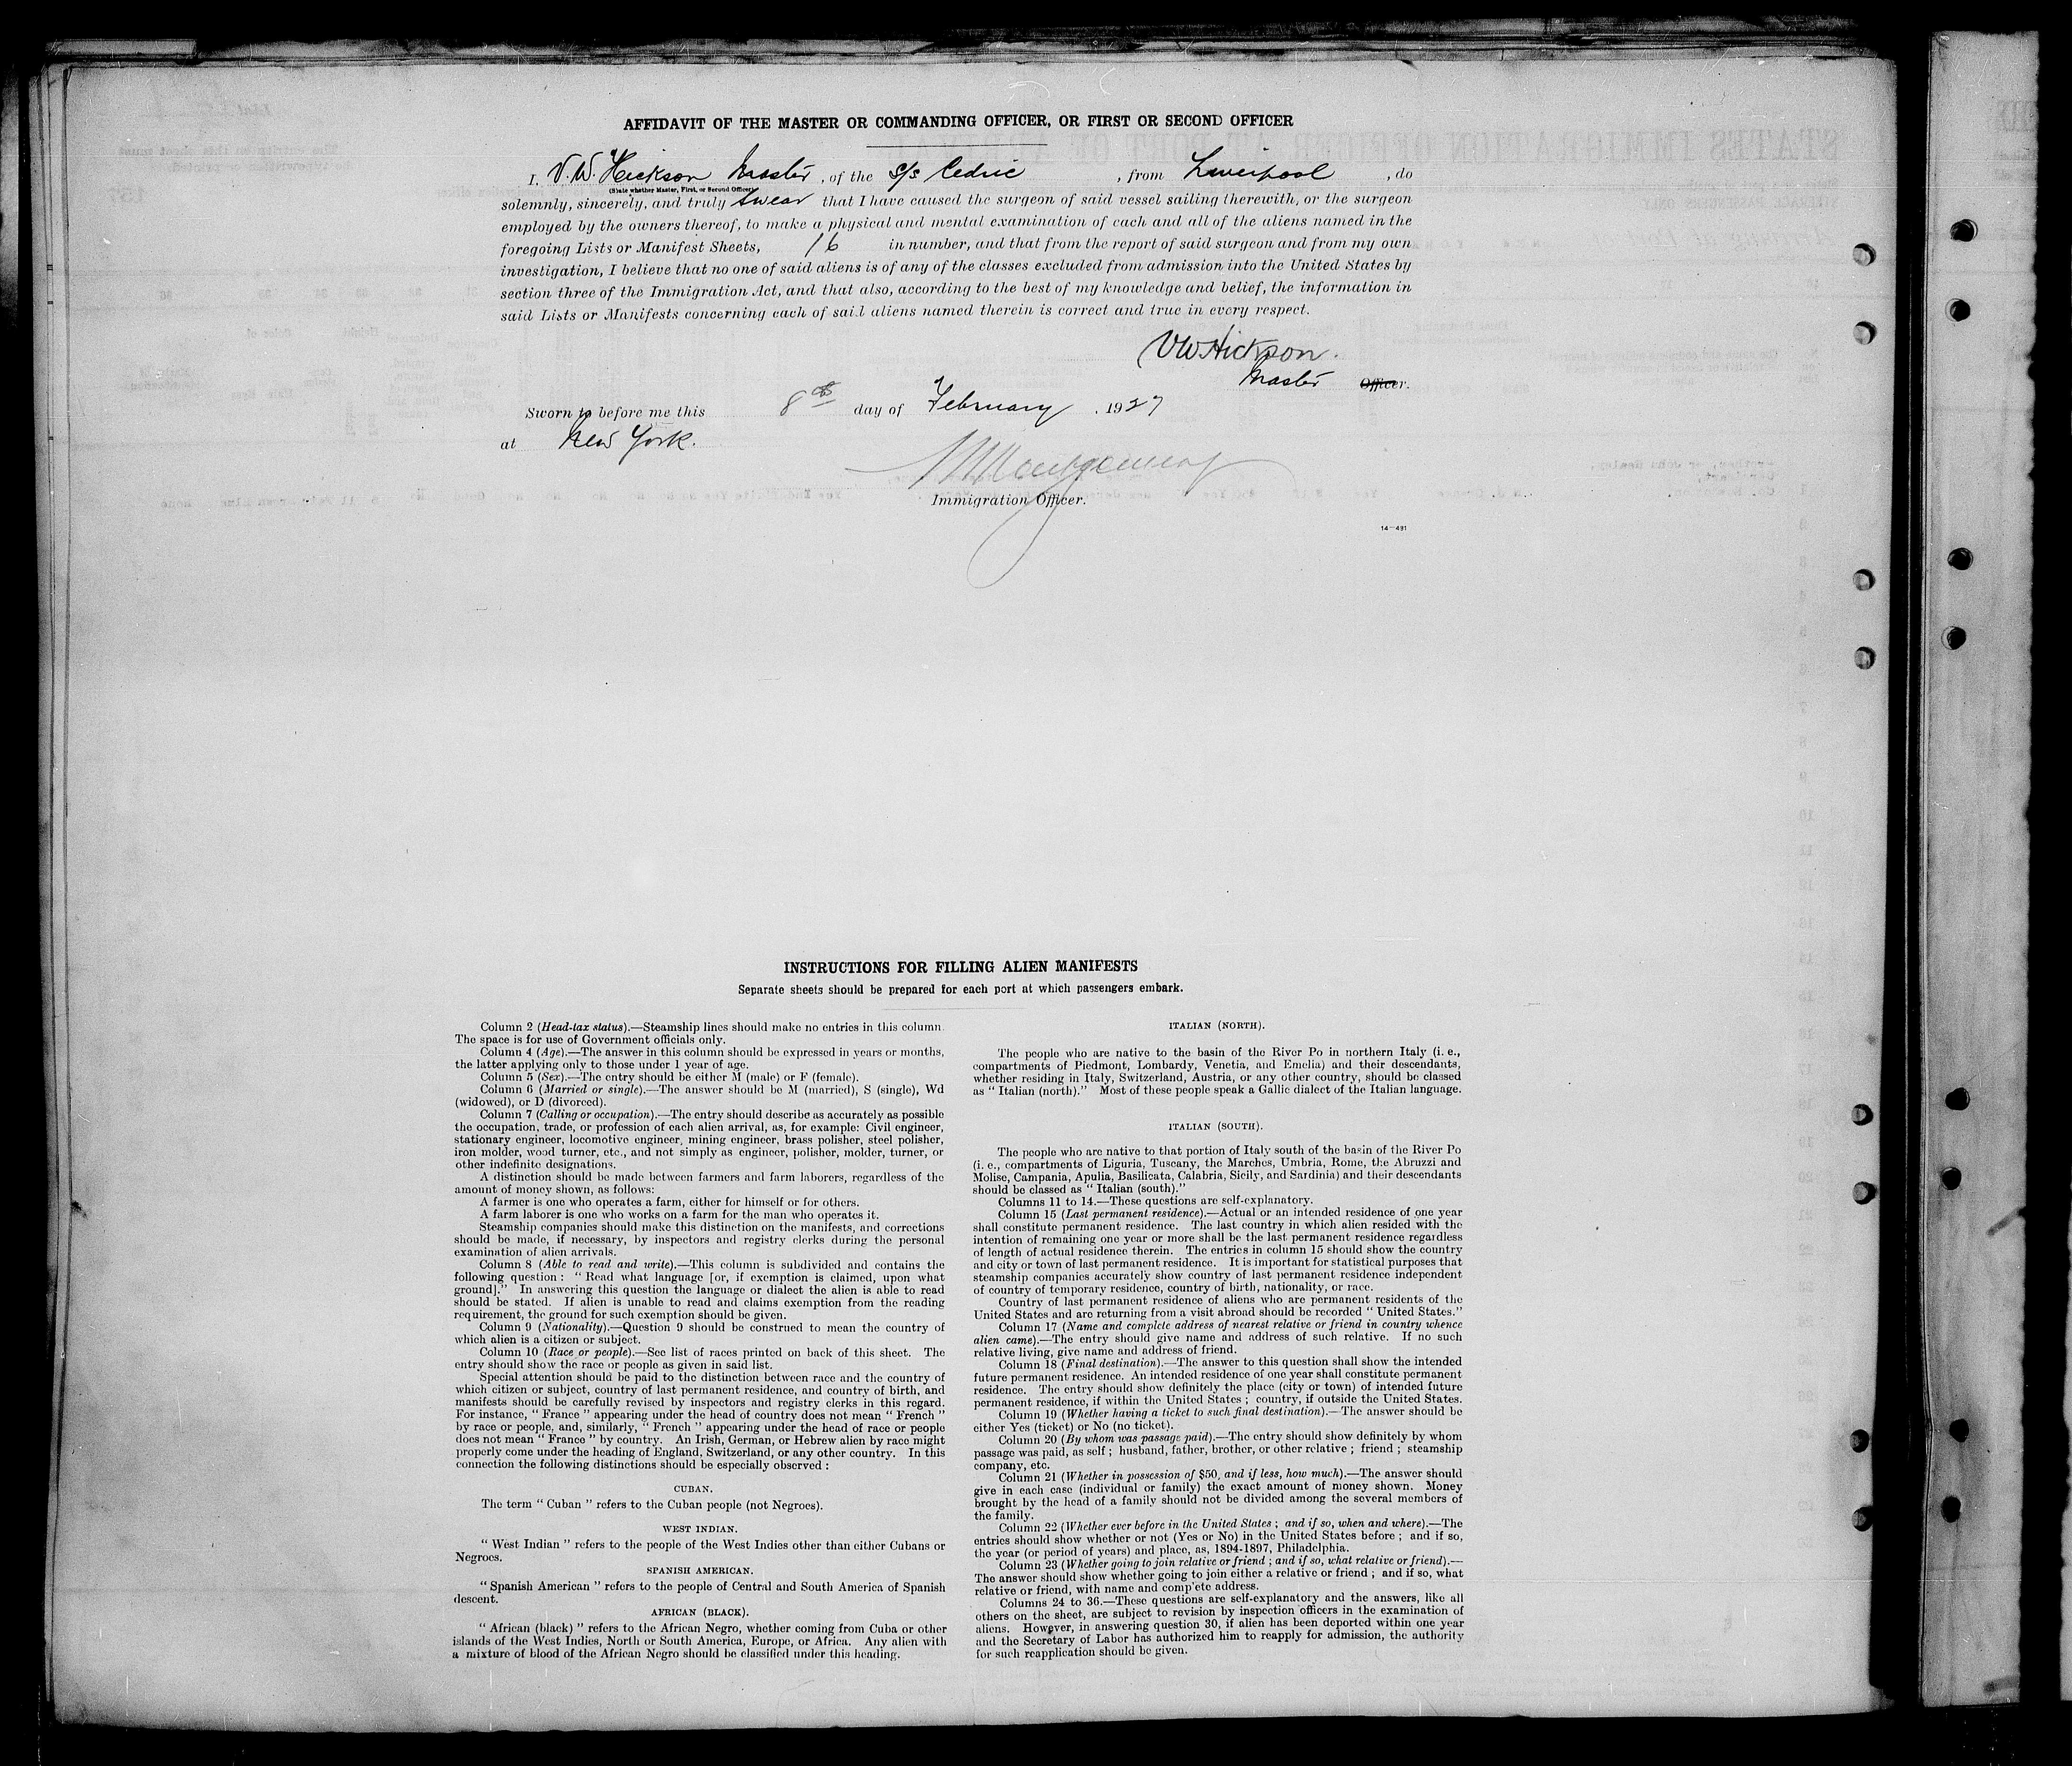 AFFIDAVIT OF THE MASTER OR COMMANDING OFFICER, OR FIRST OR SECOND OFFICER
I, V. W. Hickson Master, of the S/S Cedric, from Liverpool, do
(State whether Master, First, or Second Officer)
solemnly, sincerely, and truly swear that I have caused the surgeon of said vessel sailing therewith, or the surgeon
employed by the owners thereof, to make a physical and mental examination of each and all of the aliens named in the
foregoing Lists or Manifest Sheets, 16 in number, and that from the report of said surgeon and from my own
investigation, I believe that no one of said aliens is of any of the classes excluded from admission into the United States by
section three of the Immigration Act, and that also, according to the best of my knowledge and belief, the information in
said Lists or Manifests concerning each of said aliens named therein is correct and true in every respect.
VW Hickson.
Master Officer.
Sworn to before me this 8th day of February, 1927
at New York.
Immigration Officer.
14—491
INSTRUCTIONS FOR FILLING ALIEN MANIFESTS
Separate sheets should be prepared for each port at which passengers embark.
Column 2 (Head-tax status).—Steamship lines should make no entries in this column.
The space is for use of Government officials only.
Column 4 (Age).—The answer in this column should be expressed in years or months,
the latter applying only to those under 1 year of age.
Column 5 (Sex).—The entry should be either M (male) or F (female).
Column 6 (Married or single).—The answer should be M (married), S (single), Wd
(widowed), or D (divorced).
Column 7 (Calling or occupation).—The entry should describe as accurately as possible
the occupation, trade, or profession of each alien arrival, as, for example: Civil engineer,
stationary engineer, locomotive engineer, mining engineer, brass polisher, steel polisher,
iron molder, wood turner, etc., and not simply as engineer, polisher, molder, turner, or
other indefinite designations.
A distinction should be made between farmers and farm laborers, regardless of the
amount of money shown, as follows:
A farmer is one who operates a farm, either for himself or for others.
A farm laborer is one who works on a farm for the man who operates it.
Steamship companies should make this distinction on the manifests, and corrections
should be made, if necessary, by inspectors and registry clerks during the personal
examination of alien arrivals.
Column 8 (Able to read and write).—This column is subdivided and contains the
following question: "Read what language [or, if exemption is claimed, upon what
ground]." In answering this question the language or dialect the alien is able to read
should be stated. If alien is unable to read and claims exemption from the reading
requirement, the ground for such exemption should be given.
Column 9 (Nationality).—Question 9 should be construed to mean the country of
which alien is a citizen or subject.
Column 10 (Race or people).—See list of races printed on back of this sheet. The
entry should show the race or people as given in said list.
Special attention should be paid to the distinction between race and the country of
which citizen or subject, country of last permanent residence, and country of birth, and
manifests should be carefully revised by inspectors and registry clerks in this regard.
For instance, "France" appearing under the head of country does not mean "French"
by race or people, and, similarly, "French" appearing under the head of race or people
does not mean "France" by country. An Irish, German, or Hebrew alien by race might
properly come under the heading of England, Switzerland, or any other country. In this
connection the following distinctions should be especially observed:
CUBAN.
The term "Cuban" refers to the Cuban people (not Negroes).
WEST INDIAN.
"West Indian" refers to the people of the West Indies other than either Cubans or
Negroes.
SPANISH AMERICAN.
"Spanish American" refers to the people of Central and South America of Spanish
descent.
AFRICAN (BLACK).
"African (black)" refers to the African Negro, whether coming from Cuba or other
islands of the West Indies, North or South America, Europe, or Africa. Any alien with
a mixture of blood of the African Negro should be classified under this heading.
ITALIAN (NORTH).
The people who are native to the basin of the River Po in northern Italy (i. e.,
compartments of Piedmont, Lombardy, Venetia, and Emelia) and their descendants,
whether residing in Italy, Switzerland, Austria, or any other country, should be classed
as "Italian (north)." Most of these people speak a Gallic dialect of the Italian language.
ITALIAN (SOUTH).
The people who are native to that portion of Italy south of the basin of the River Po
(i. e., compartments of Liguria, Tuscany, the Marches, Umbria, Rome, the Abruzzi and
Molise, Campania, Apulia, Basilicata, Calabria, Sicily, and Sardinia) and their descendants
should be classed as "Italian (south)."
Columns 11 to 14.—These questions are self-explanatory.
Column 15 (Last permanent residence).—Actual or an intended residence of one year
shall constitute permanent residence. The last country in which alien resided with the
intention of remaining one year or more shall be the last permanent residence regardless
of length of actual residence therein. The entries in column 15 should show the country
and city or town of last permanent residence. It is important for statistical purposes that
steamship companies accurately show country of last permanent residence independent
of country of temporary residence, country of birth, nationality, or race.
Country of last permanent residence of aliens who are permanent residents of the
United States and are returning from a visit abroad should be recorded "United States."
Column 17 (Name and complete address of nearest relative or friend in country whence
alien came).—The entry should give name and address of such relative. If no such
relative living, give name and address of friend.
Column 18 (Final destination).—The answer to this question shall show the intended
future permanent residence. An intended residence of one year shall constitute permanent
residence. The entry should show definitely the place (city or town) of intended future
permanent residence, if within the United States; country, if outside the United States.
Column 19 (Whether having a ticket to such final destination).—The answer should be
either Yes (ticket) or No (no ticket).
Column 20 (By whom was passage paid).—The entry should show definitely by whom
passage was paid, as self; husband, father, brother, or other relative; friend; steamship
company, etc.
Column 21 (Whether in possession of $50, and if less, how much).—The answer should
give in each case (individual or family) the exact amount of money shown. Money
brought by the head of a family should not be divided among the several members of
the family.
Column 22 (Whether ever before in the United States; and if so, when and where).—The
entries should show whether or not (Yes or No) in the United States before; and if so,
the year (or period of years) and place, as, 1894-1897, Philadelphia.
Column 23 (Whether going to join relative or friend; and if so, what relative or friend).—
The answer should show whether going to join either a relative or friend; and if so, what
relative or friend, with name and complete address.
Columns 24 to 36.—These questions are self-explanatory and the answers, like all
others on the sheet, are subject to revision by inspection officers in the examination of
aliens. However, in answering question 30, if alien has been deported within one year
and the Secretary of Labor has authorized him to reapply for admission, the authority
for such reapplication should be given.